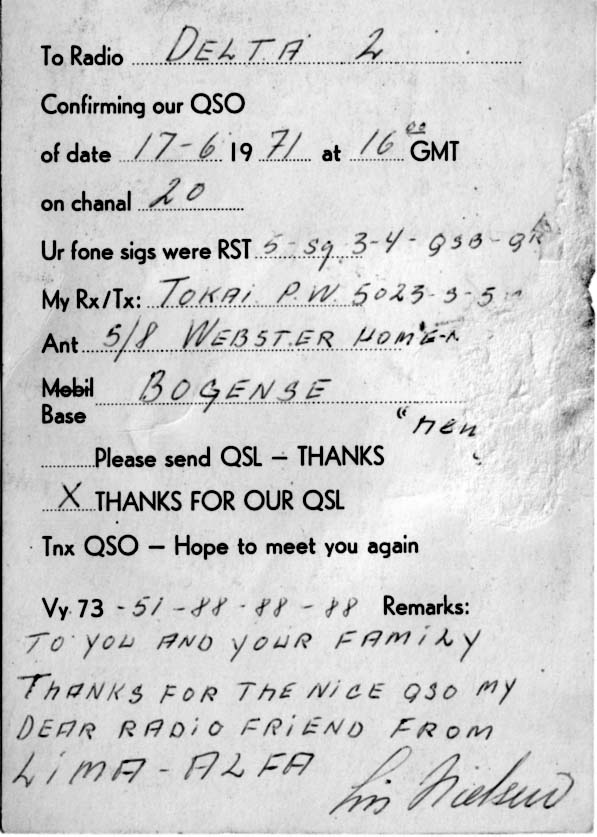 To Radio DELTA 2
Confirming our QSO
of date 17-6 1971 at 16⁰⁰ GMT
on chanal 20
Ur fone sigs were RST 5-59 3-4-QSB-
My Rx/Tx: TOKAI P.W. 5023-S-5
Ant 5/8 WEBSTER
Mobil BOGENSE
Base
Please send QSL – THANKS
X THANKS FOR OUR QSL
Tnx QSO – Hope to meet you again
Vy 73 - 51 - 88 - 88 - 88 Remarks:
TO YOU AND YOUR FAMILY
THANKS FOR THE NICE QSO MY
DEAR RADIO FRIEND FROM
LIMA - ALFA Lis Nielsen